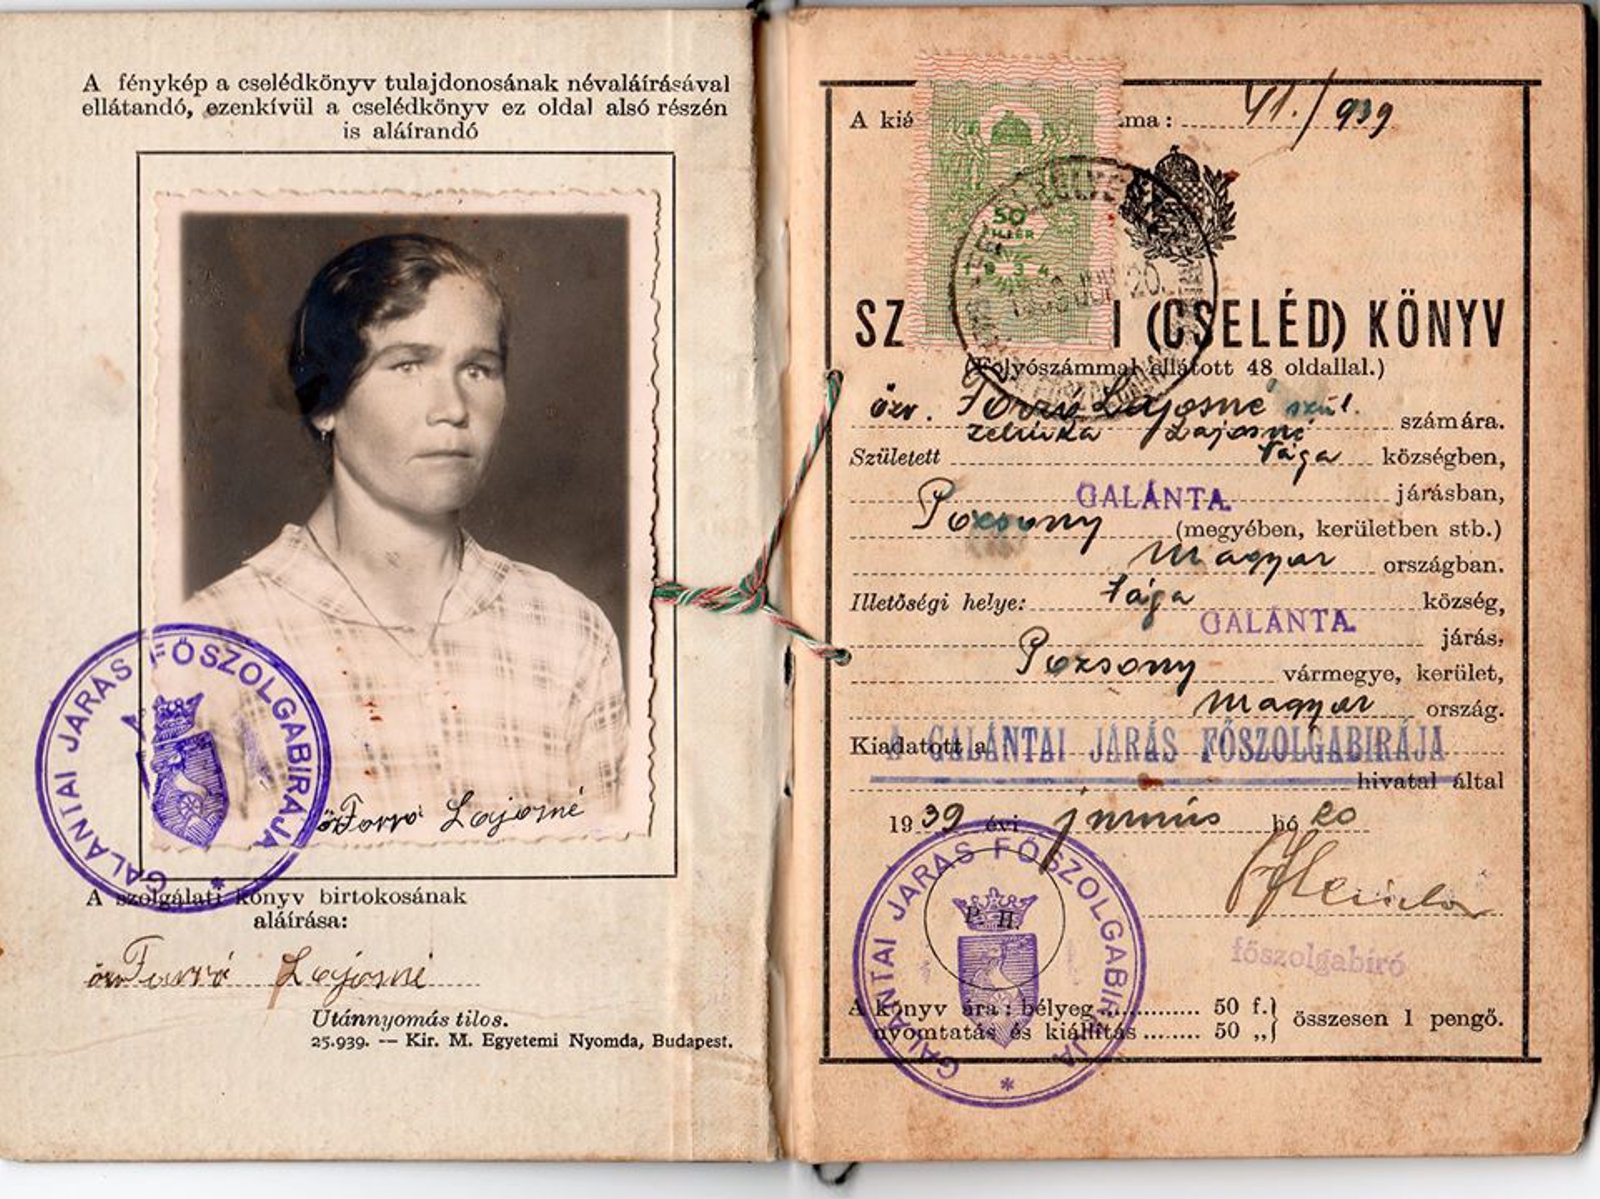 A fénykép a cselédkönyv tulajdonosának névaláírásával
ellátandó, ezenkívül a cselédkönyv ez oldal alsó részén
is aláírandó
GALÁNTAI JÁRÁS FŐSZOLGABIRÁJA
özv Forró Lajosné
A szolgálati könyv birtokosának
aláírása:
özv Forró Lajosné
Utánnyomás tilos.
25.939. — Kir. M. Egyetemi Nyomda, Budapest.
A kiá ma: 41./939
50
FILLÉR
1934
SZ I (CSELÉD) KÖNYV
(Folyószámmal ellátott 48 oldallal.)
özv. Forró Lajosné szül.
Lajosné számára.
Született Tága községben,
GALÁNTA járásban,
Pozsony (megyében, kerületben stb.)
Magyar országban.
Illetőségi helye: Tága község,
GALÁNTA járás,
Pozsony vármegye, kerület,
Magyar ország.
Kiadatott a A GALÁNTAI JÁRÁS FŐSZOLGABIRÁJA
hivatal által
1939 évi június hó 20
P. H.
GALÁNTAI JÁRÁS FŐSZOLGABIRÁJA
főszolgabíró
A könyv ára: bélyeg ............ 50 f.
nyomtatás és kiállítás ........ 50 „ } összesen 1 pengő.